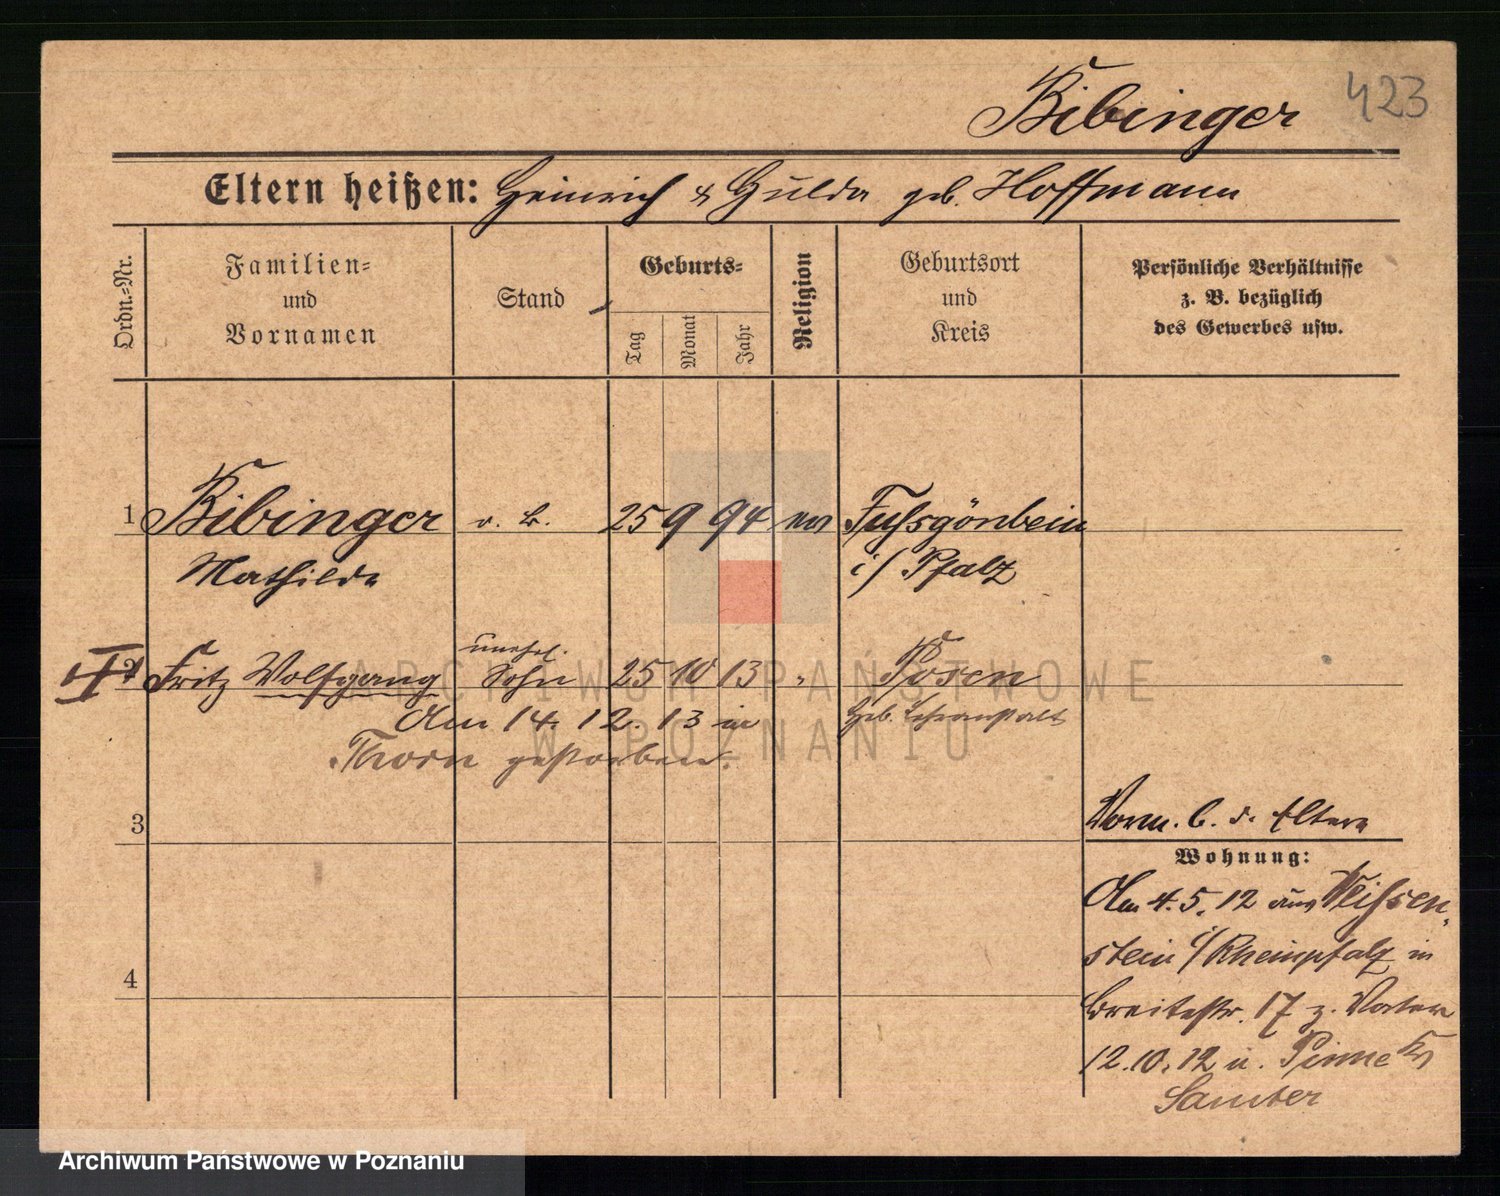 Bibinger 423
Eltern heißen: Heinrich & Hulda geb. Hoffmann
Ordn.-Nr.
Familien-
und
Vornamen
Stand
Geburts-
Tag
Monat
Jahr
Religion
Geburtsort
und
Kreis
Persönliche Verhältnisse
z. B. bezüglich
des Gewerbes usw.
1 Bibinger o. B. 25 9 94 ev Fußgönheim
Mathilde i/ Pfalz
2 Fritz Wolfgang unehel. Sohn 25 10 13 " Posen
Am 14. 12. 13 in Heb. Lehranstalt
Thorn gestorben.
3
Vorm. b. d. Eltern
Wohnung:
Am 4. 5. 12 aus Weissen-
stein i/Rheinpfalz in
Breitestr. 17 z. Vater
4
12. 10. 12 n. Pinne Kr
Samter
ARCHIWUM PAŃSTWOWE
W POZNANIU
Archiwum Państwowe w Poznaniu